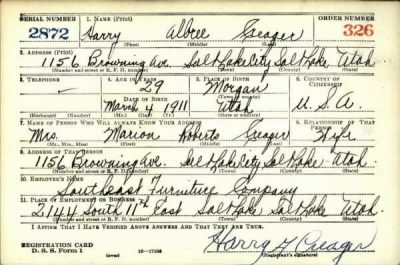 SERIAL NUMBER 1. NAME (Print) ORDER NUMBER
2872 Harry Albree Creager 326
(First) (Middle) (Last)
2. ADDRESS (Print)
1156 Browning Ave. Salt Lake City Salt Lake Utah
(Number and street or R. F. D. number) (Town) (County) (State)
3. TELEPHONE 4. AGE IN YEARS 5. PLACE OF BIRTH 6. COUNTRY OF CITIZENSHIP
29 Morgan
DATE OF BIRTH
March 4 1911 Utah U.S.A.
(Exchange) (Number) (Mo.) (Day) (Yr.) (State or country)
7. NAME OF PERSON WHO WILL ALWAYS KNOW YOUR ADDRESS 8. RELATIONSHIP OF THAT PERSON
Mrs. Marion Roberts Creager Wife
(Mr., Mrs., Miss) (First) (Middle) (Last)
9. ADDRESS OF THAT PERSON
1156 Browning Ave. Salt Lake City Salt Lake Utah.
(Number and street or R. F. D. number) (Town) (County) (State)
10. EMPLOYER'S NAME
South East Furniture Company
11. PLACE OF EMPLOYMENT OR BUSINESS
2144 South 11th East Salt Lake Salt Lake Utah.
(Number and street or R. F. D. number) (Town) (County) (State)
I AFFIRM THAT I HAVE VERIFIED ABOVE ANSWERS AND THAT THEY ARE TRUE.
REGISTRATION CARD
D. S. S. Form 1 Harry A Creager
(over) 16—17105 (Registrant's signature)